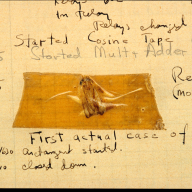 Relay
In Relay
Relays changed
Started Cosine Tape
Started Mult + Adder
Re
(mo
First actual case of
antangent started.
closed down.